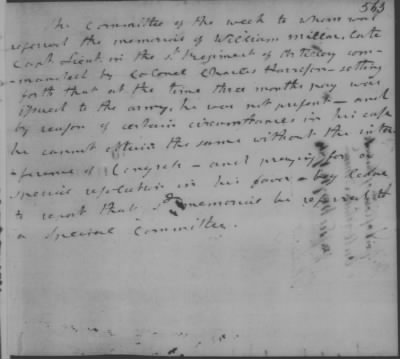 563
The Committee of the week to whom was
referred the memorial of William Millar, late
Capt Lieut. in the 1st Regiment of Artillery com-
-manded by Colonel Charles Harrison - setting
forth that at the time three months pay was
issued to the army, he was not present - and
by reason of certain circumstances in his case
he cannot obtain the same without the inter-
-ference of Congress - and praying for a
special resolution in his favor - beg leave
to report that sd memorial be referred to
a Special Committee.